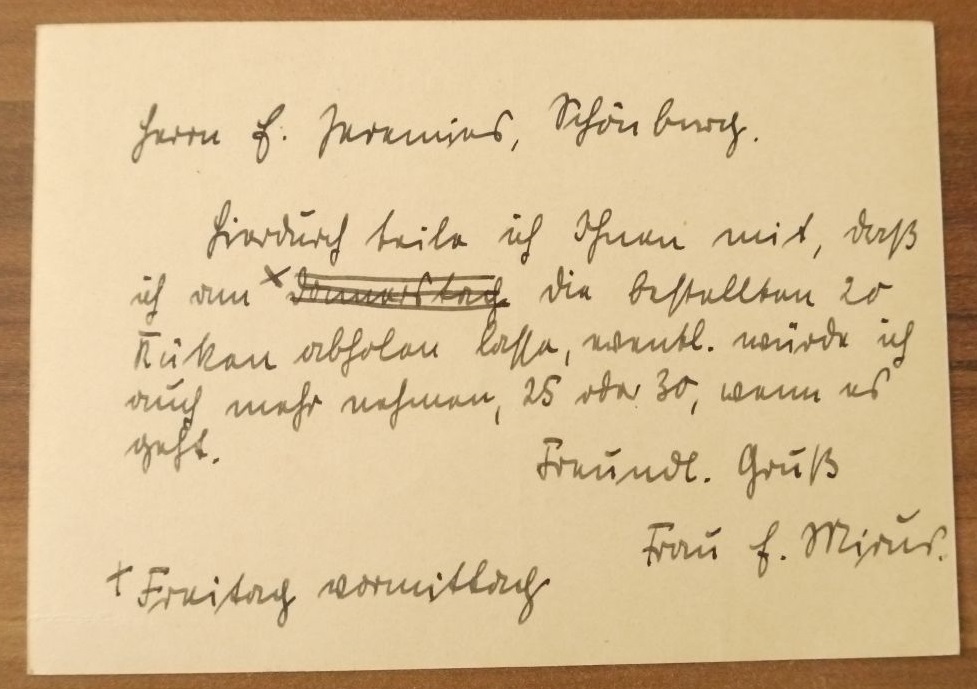 Herrn E. Jeremies, Schönburg.
Hierdurch teile ich Ihnen mit, daß
ich am × Donnerstag die bestellten 20
Küken abholen lasse, eventl. würde ich
auch mehr nehmen, 25 oder 30, wenn es
geht.
Freundl. Gruß
Frau E. Mirus.
× Freitag vormittag